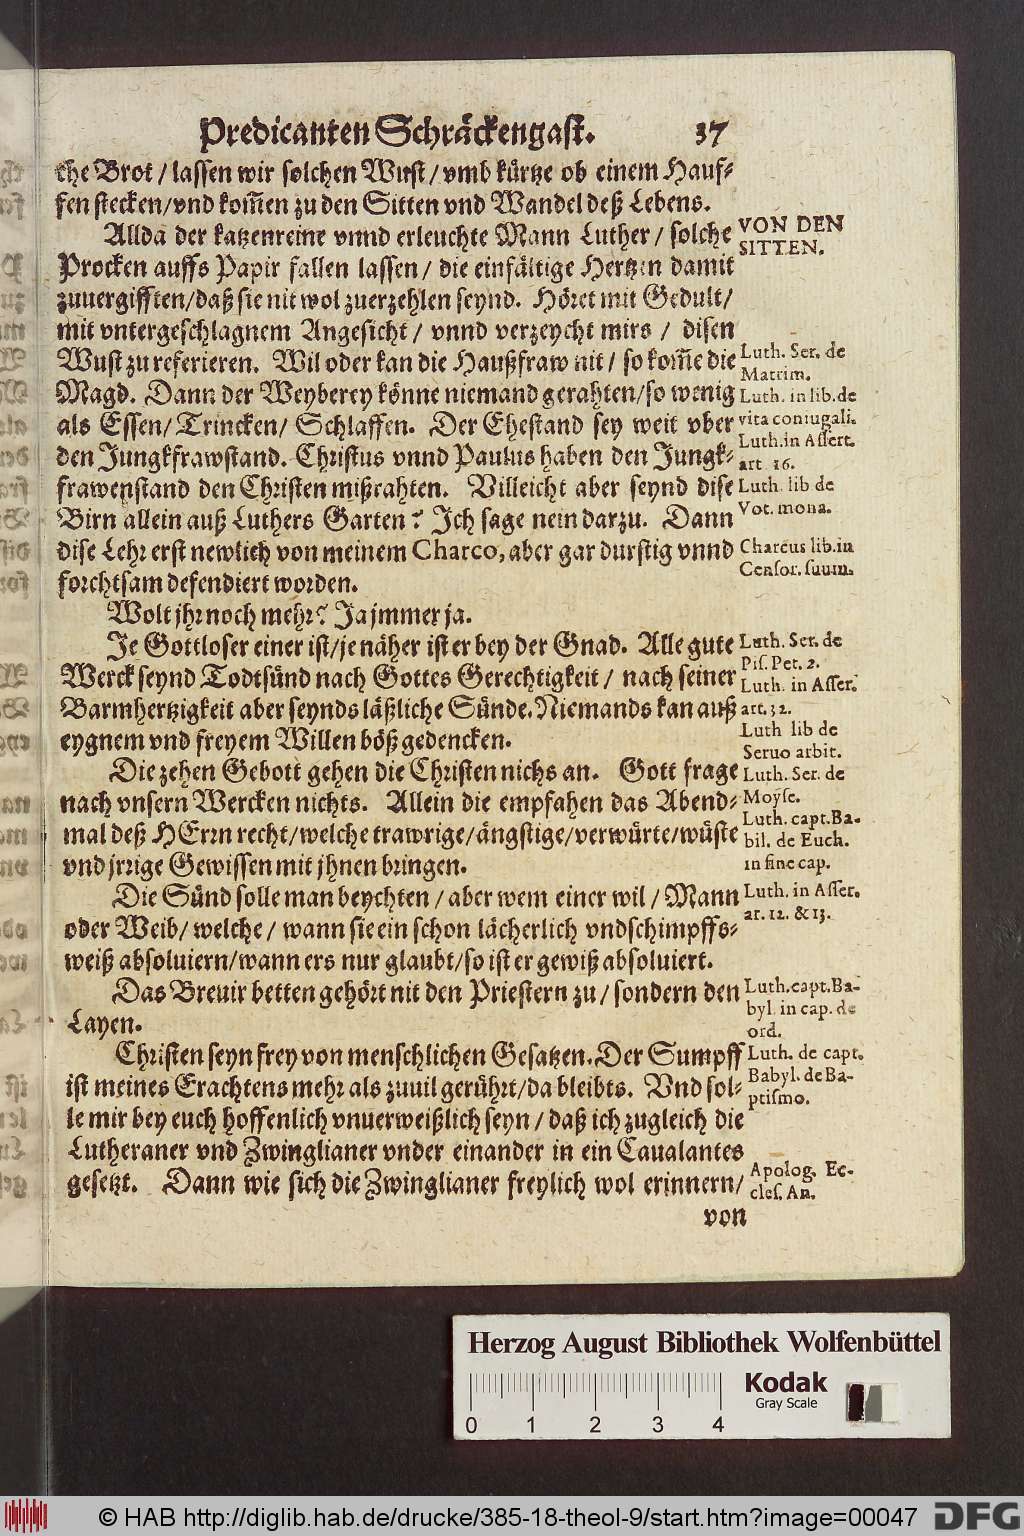 Predicanten Schräckengast. 37
che Brot / lassen wir solchen Wust / vmb kürtze ob einem Hauf-
fen stecken / vnd kom̃en zu den Sitten vnd Wandel deß Lebens.
Allda der katzenreine vnnd erleuchte Mann Luther / solche
Procken auffs Papir fallen lassen / die einfältige Hertzen damit
zuuergifften / daß sie nit wol zuerzehlen seynd. Höret mit Gedult /
mit vntergeschlagnem Angesicht / vnnd verzeycht mirs / disen
Wust zu referieren. Wil oder kan die Haußfraw nit / so kom̃e die
Magd. Dann der Weyberey könne niemand gerahten / so wenig
als Essen / Trincken / Schlaffen. Der Ehestand sey weit vber
den Jungkfrawstand. Christus vnnd Paulus haben den Jungk-
frawenstand den Christen mißrahten. Villeicht aber seynd dise
Birn allein auß Luthers Garten? Ich sage nein darzu. Dann
dise Lehr erst newlich von meinem Charco, aber gar durstig vnnd
forchtsam defendiert worden.
Wolt jhr noch mehr? Ja jmmer ja.
Je Gottloser einer ist / je näher ist er bey der Gnad. Alle gute
Werck seynd Todtsünd nach Gottes Gerechtigkeit / nach seiner
Barmhertzigkeit aber seynds läßliche Sünde. Niemands kan auß
eygnem vnd freyem Willen böß gedencken.
Die zehen Gebott gehen die Christen nichs an. Gott frage
nach vnsern Wercken nichts. Allein die empfahen das Abend-
mal deß HErrn recht / welche trawrige / ängstige / verwürte / wüste
vnd jrrige Gewissen mit jhnen bringen.
Die Sünd solle man beychten / aber wem einer wil / Mann
oder Weib / welche / wann sie ein schon lächerlich vnd schimpffs-
weiß absoluiern / wann ers nur glaubt / so ist er gewiß absoluiert.
Das Breuir betten gehört nit den Priestern zu / sondern den
Layen.
Christen seyn frey von menschlichen Gesatzen. Der Sumpff
ist meines Erachtens mehr als zuuil gerührt / da bleibts. Vnd sol-
le mir bey euch hoffenlich vnuerweißlich seyn / daß ich zugleich die
Lutheraner vnd Zwinglianer vnder einander in ein Caualantes
gesetzt. Dann wie sich die Zwinglianer freylich wol erinnern /
von
VON DEN
SITTEN.
Luth. Ser. de
Matrim.
Luth. in lib. de
vita coniugali.
Luth. in Assert.
art 16.
Luth. lib de
Vot. mona.
Charcus lib. in
Censor. suum.
Luth. Ser. de
Pis. Pet. 2.
Luth. in Asser.
art. 32.
Luth lib de
Seruo arbit.
Luth. Ser. de
Moyse.
Luth. capt. Ba-
bil. de Euch.
in fine cap.
Luth. in Asser.
ar. 12. & 13.
Luth. capt. Ba-
byl. in cap. de
ord.
Luth. de capt.
Babyl. de Ba-
ptismo.
Apolog. Ec-
cles. An.
Herzog August Bibliothek Wolfenbüttel
Kodak
Gray Scale
0 1 2 3 4
© HAB http://diglib.hab.de/drucke/385-18-theol-9/start.htm?image=00047
DFG